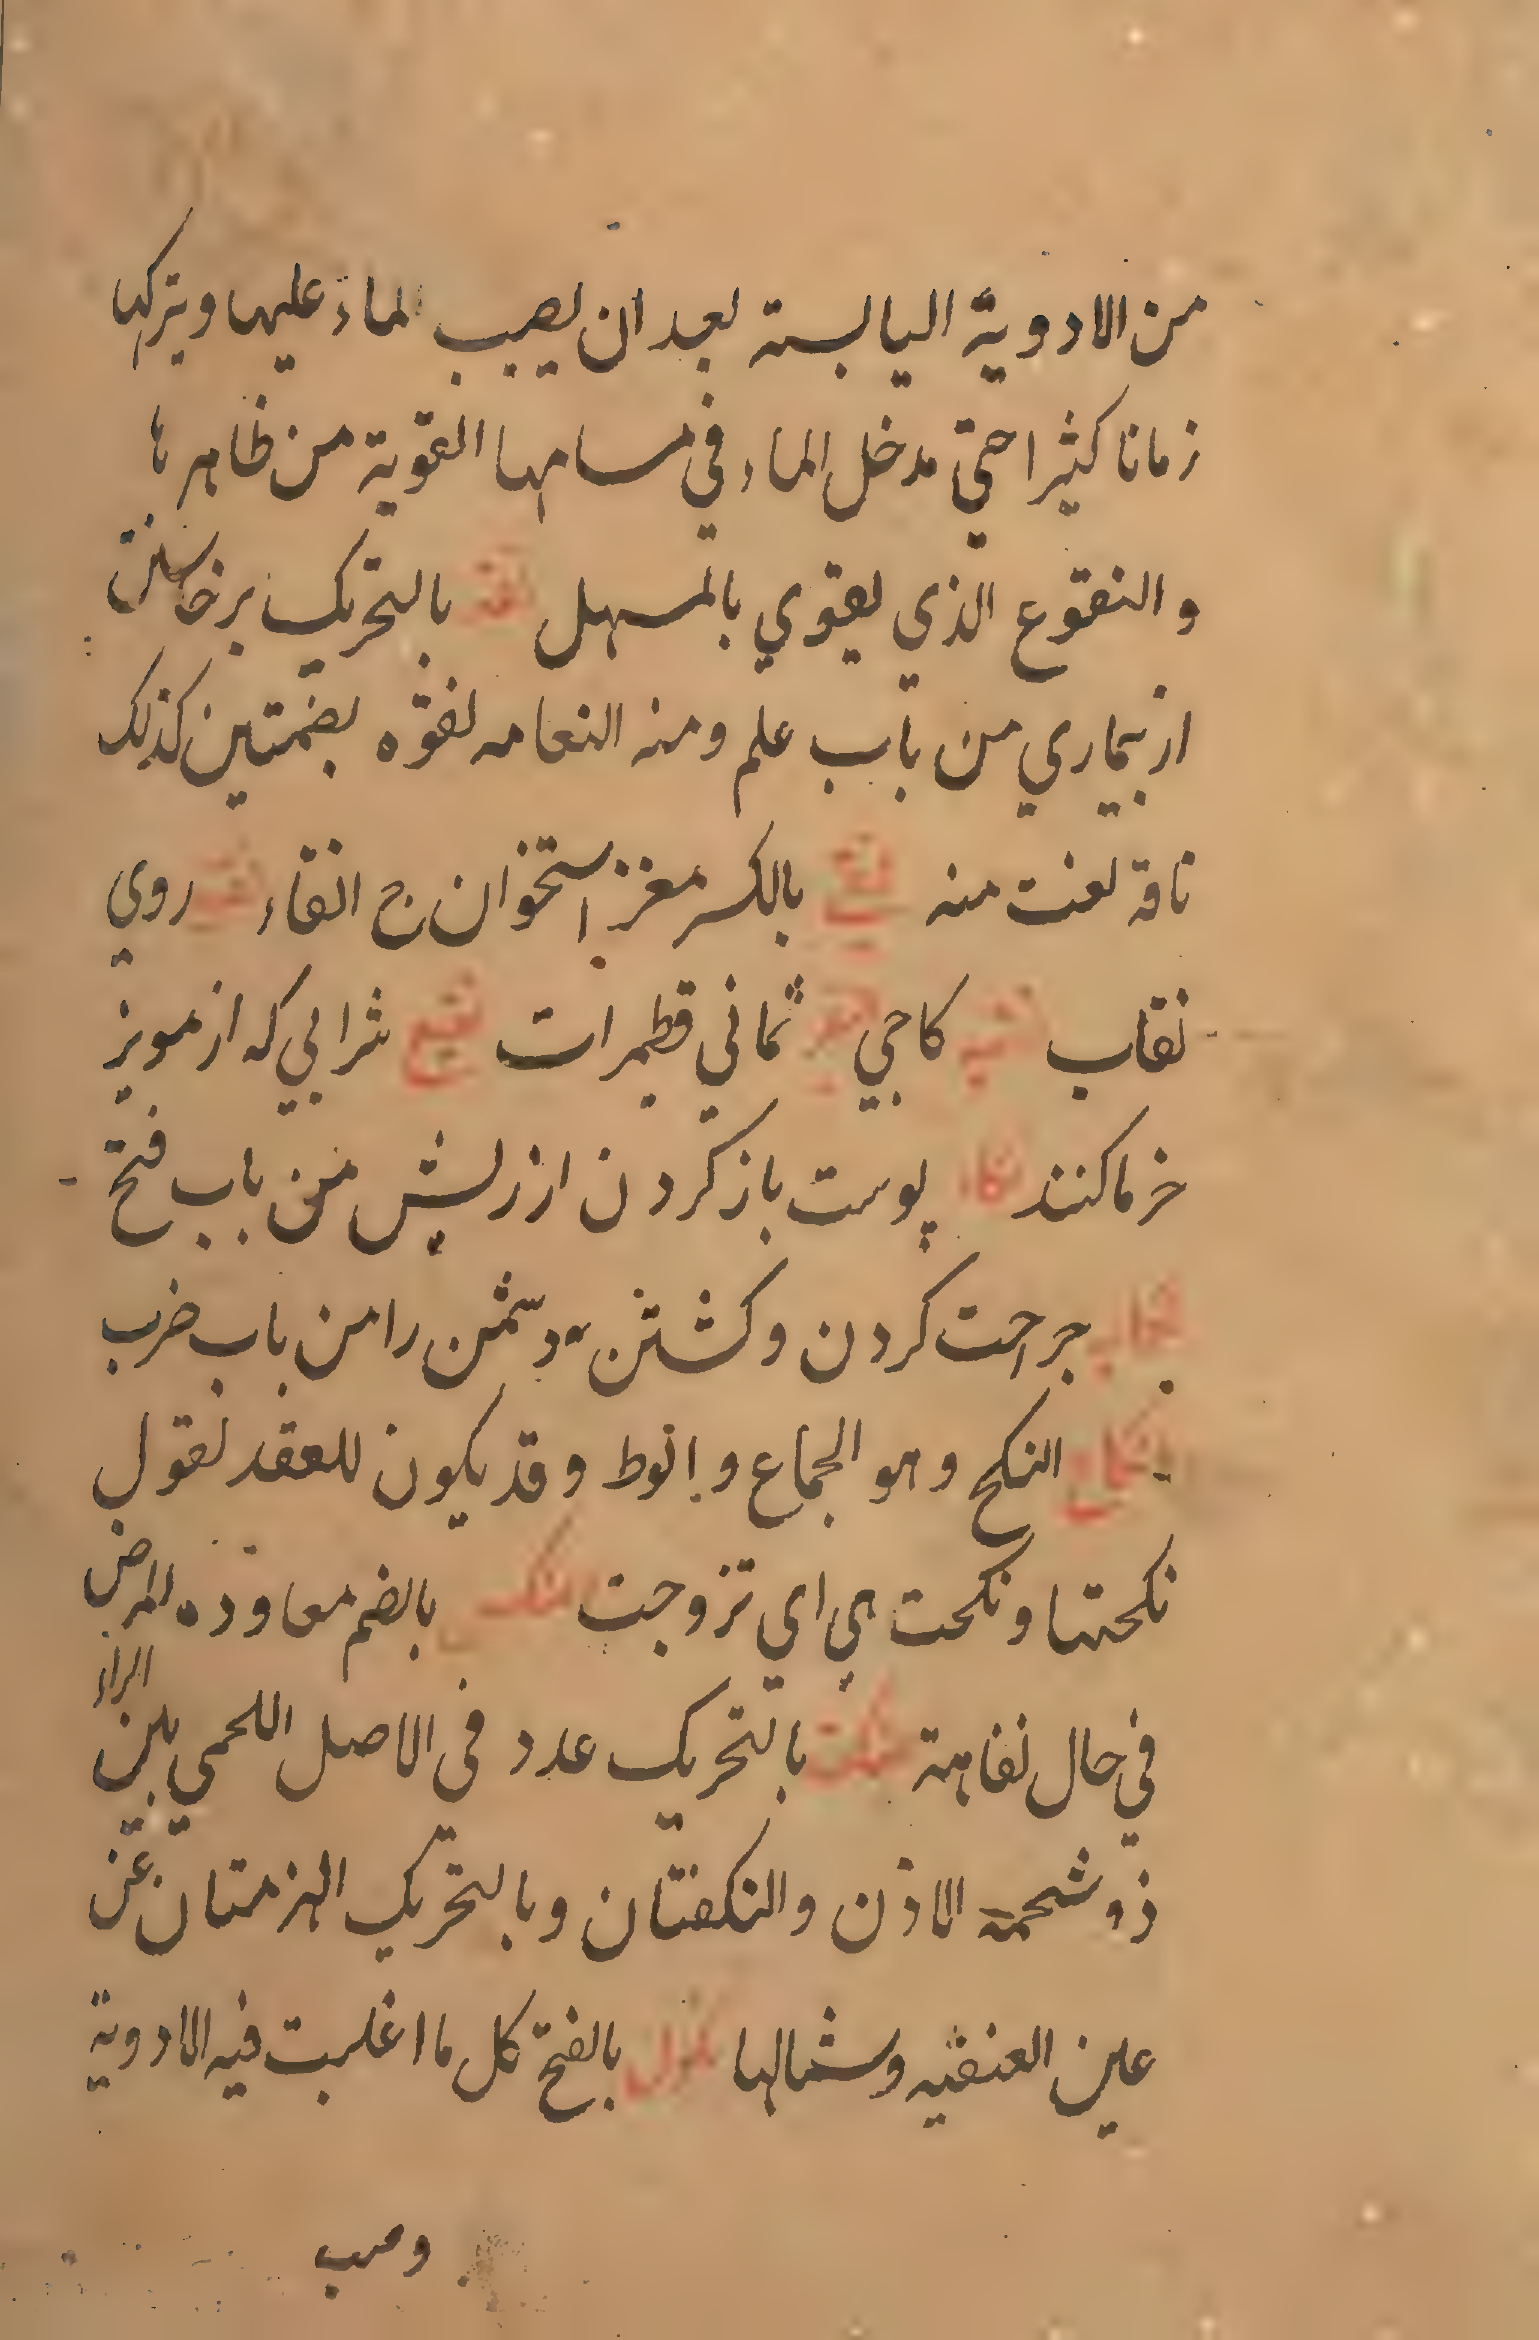 من الادوية اليابسته بعد ان يصيب الماء عليها ويتركها
زمانا كثيرا حتي يدخل الماء في مسامها القوية من ظاهرها
والنقوع الذي يقوي بالمسهل نقه بالتحريك برخاستن
از بيماري من باب علم ومنه النعامه نقوه بضمتين كذلك
ناقة لغت منه نقي بالكسر مغز استخوان ج انقاء روي
نقاب كاجي ثماني قطميرات نقيع شرابي كه از مويز
خرما كنند نكاء پوست باز كردن از ريش من باب فتح
نكايه جرحت كردن و كشتن دشمن را من باب ضرب
نكاح النكح وهو الجماع و انوط وقد يكون للعقد تقول
نكحتها ونكحت هي اي تزوجت نكس بالضم معاوده المرض
في حال نقاهة بالتحريك عدد في الاصل اللحمي بين الراد
ذو شحمة الاذن والنكفتان وبالتحريك الهزمتان عن
عين العنفقيه وشمالها نطول بالفتح كل ما اغلبت فيه الادوية
وصب